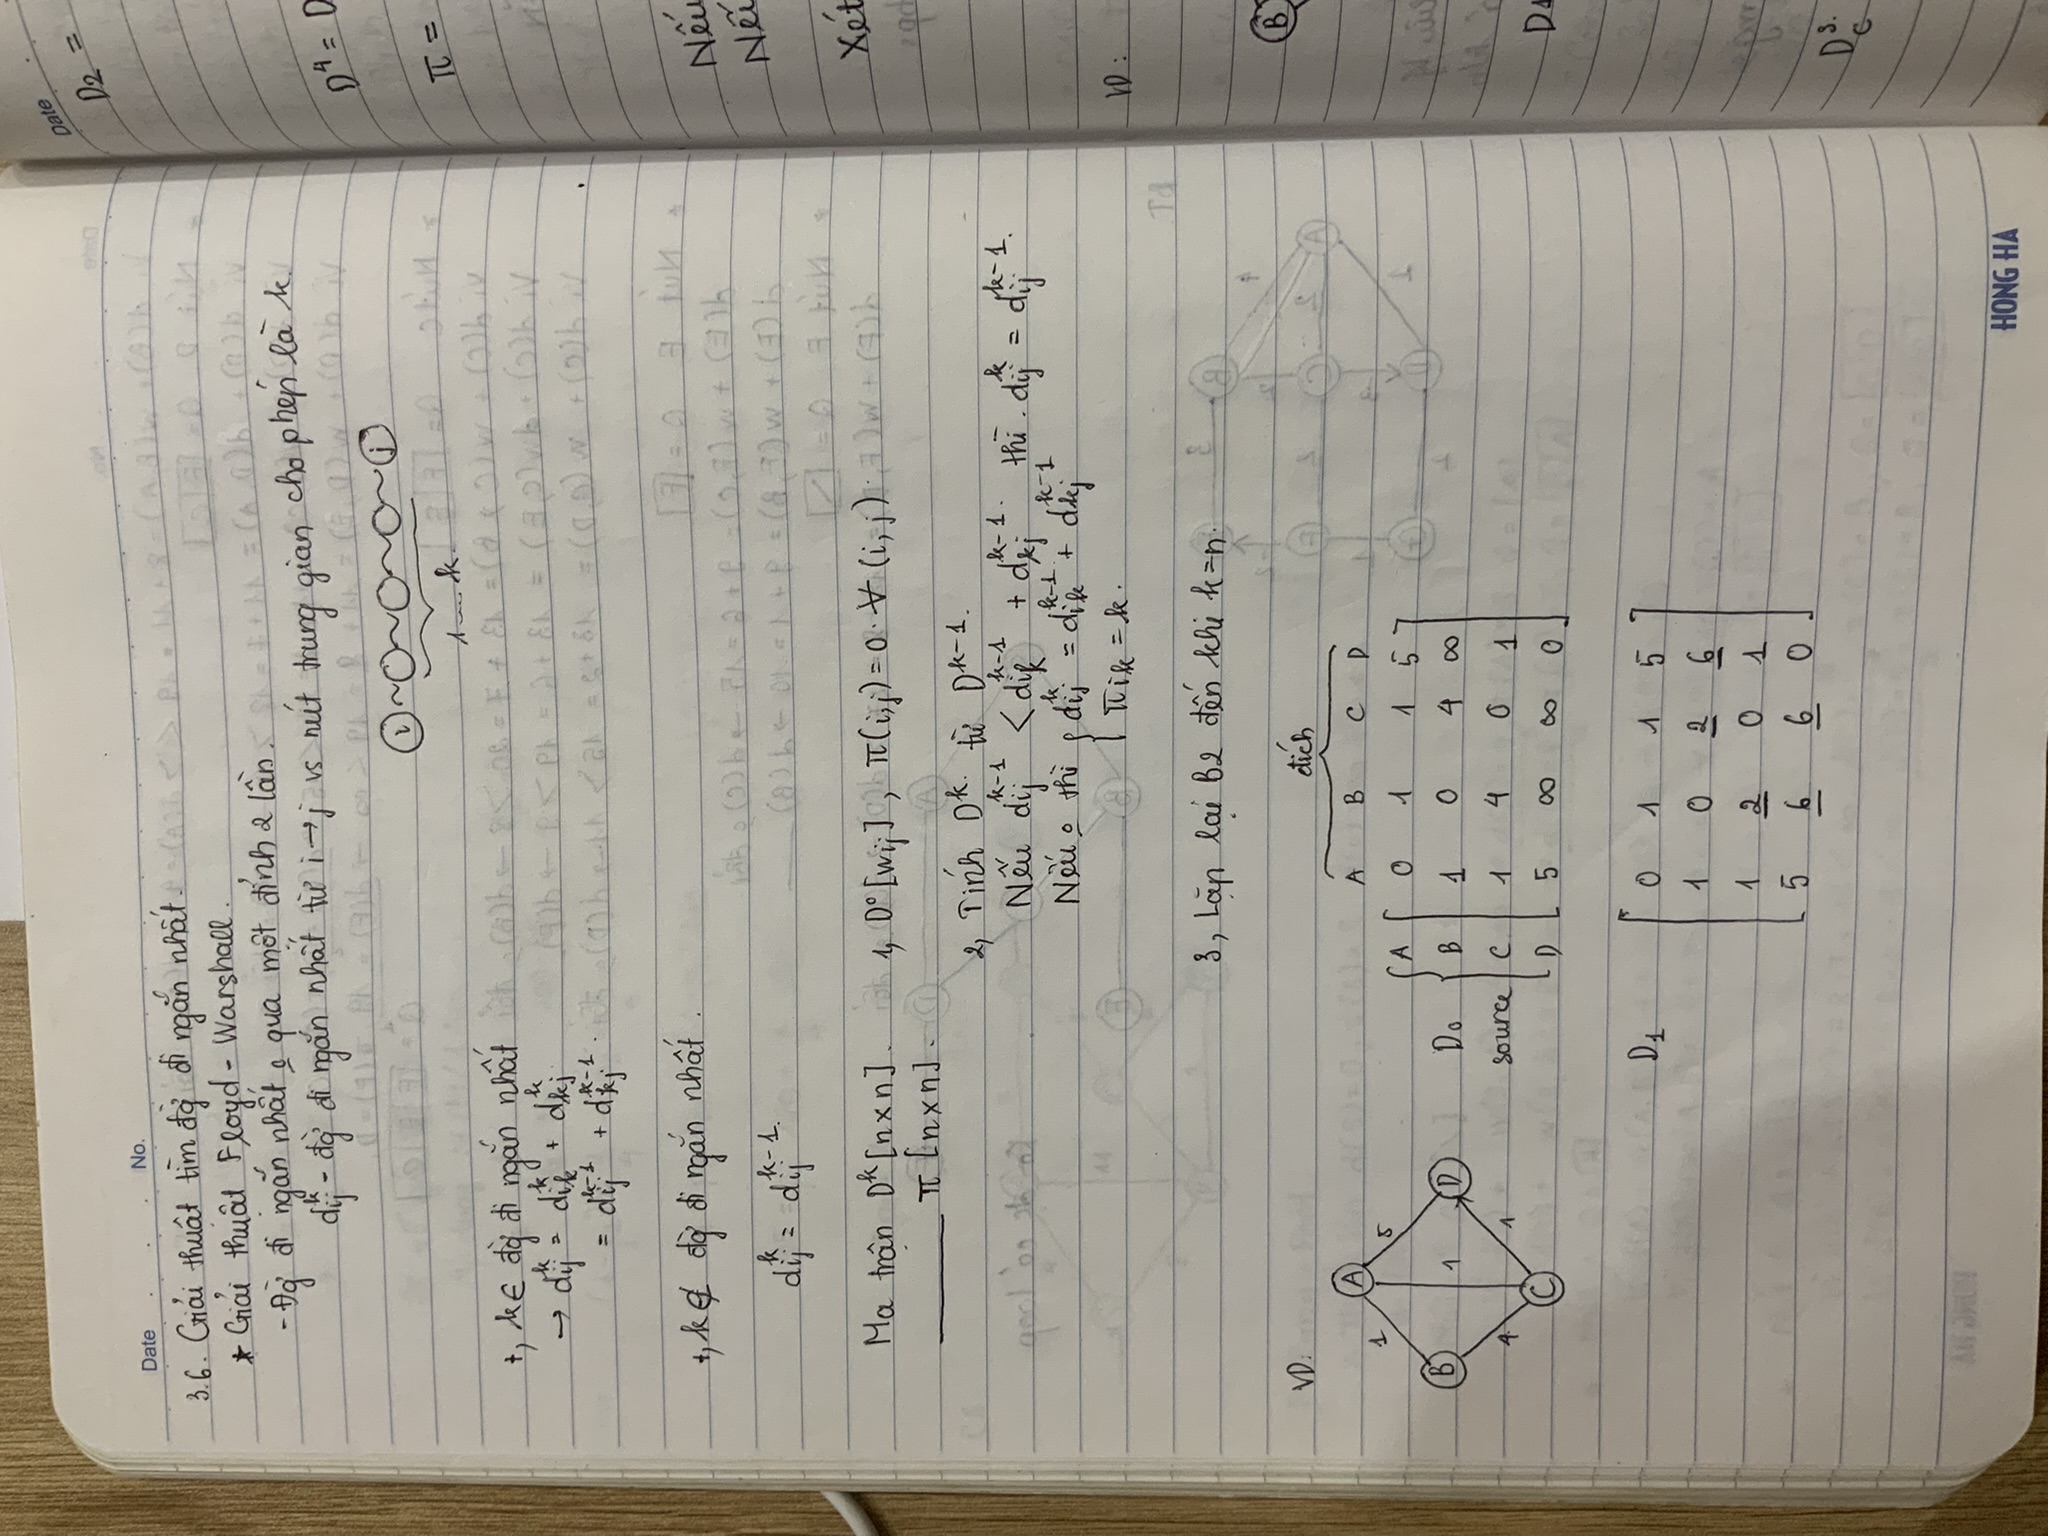 Date No.
3.6. Giải thuật tìm đg̀ đi ngắn nhất.
* Giải thuật Floyd - Warshall.
- Đg̀ đi ngắn nhất o qua một đỉnh 2 lần.
dij^k - đg̀ đi ngắn nhất từ i → j vs nút trung gian cho phép là k.
i ~ ~ ~ ~ j
1....k.
+, k ∈ đg̀ đi ngắn nhất
→ dij^k = dik^k + dkj^k
= dij^k-1 + dkj^k-1.
+, k ∉ đg̀ đi ngắn nhất.
dij^k = dij^k-1.
Ma trận D^k [n x n]. 1, D° [wij], π(i,j) = 0. ∀ (i, j).
π [n x n].
2, Tính D^k. từ D^k-1.
Nếu dij^k-1 < dik^k-1 + dkj^k-1. thì. dij^k = dij^k-1.
Nếu o thì { dij^k = dik^k-1 + dkj^k-1
πik = k.
3, Lặp lại B2 đến khi k = n.
VD: đích
A B C D
A 0 1 1 5
Do B 1 0 4 ∞
source C 1 4 0 1
D 5 ∞ ∞ 0
A
1 5
B 1 D
4 1
C
D1 0 1 1 5
1 0 2 6
1 2 0 1
5 6 6 0
HONG HA
Date
D2 =
D^4 = D
π =
Nếu
Nếu
Xét
VD:
B
D1
D^3. C